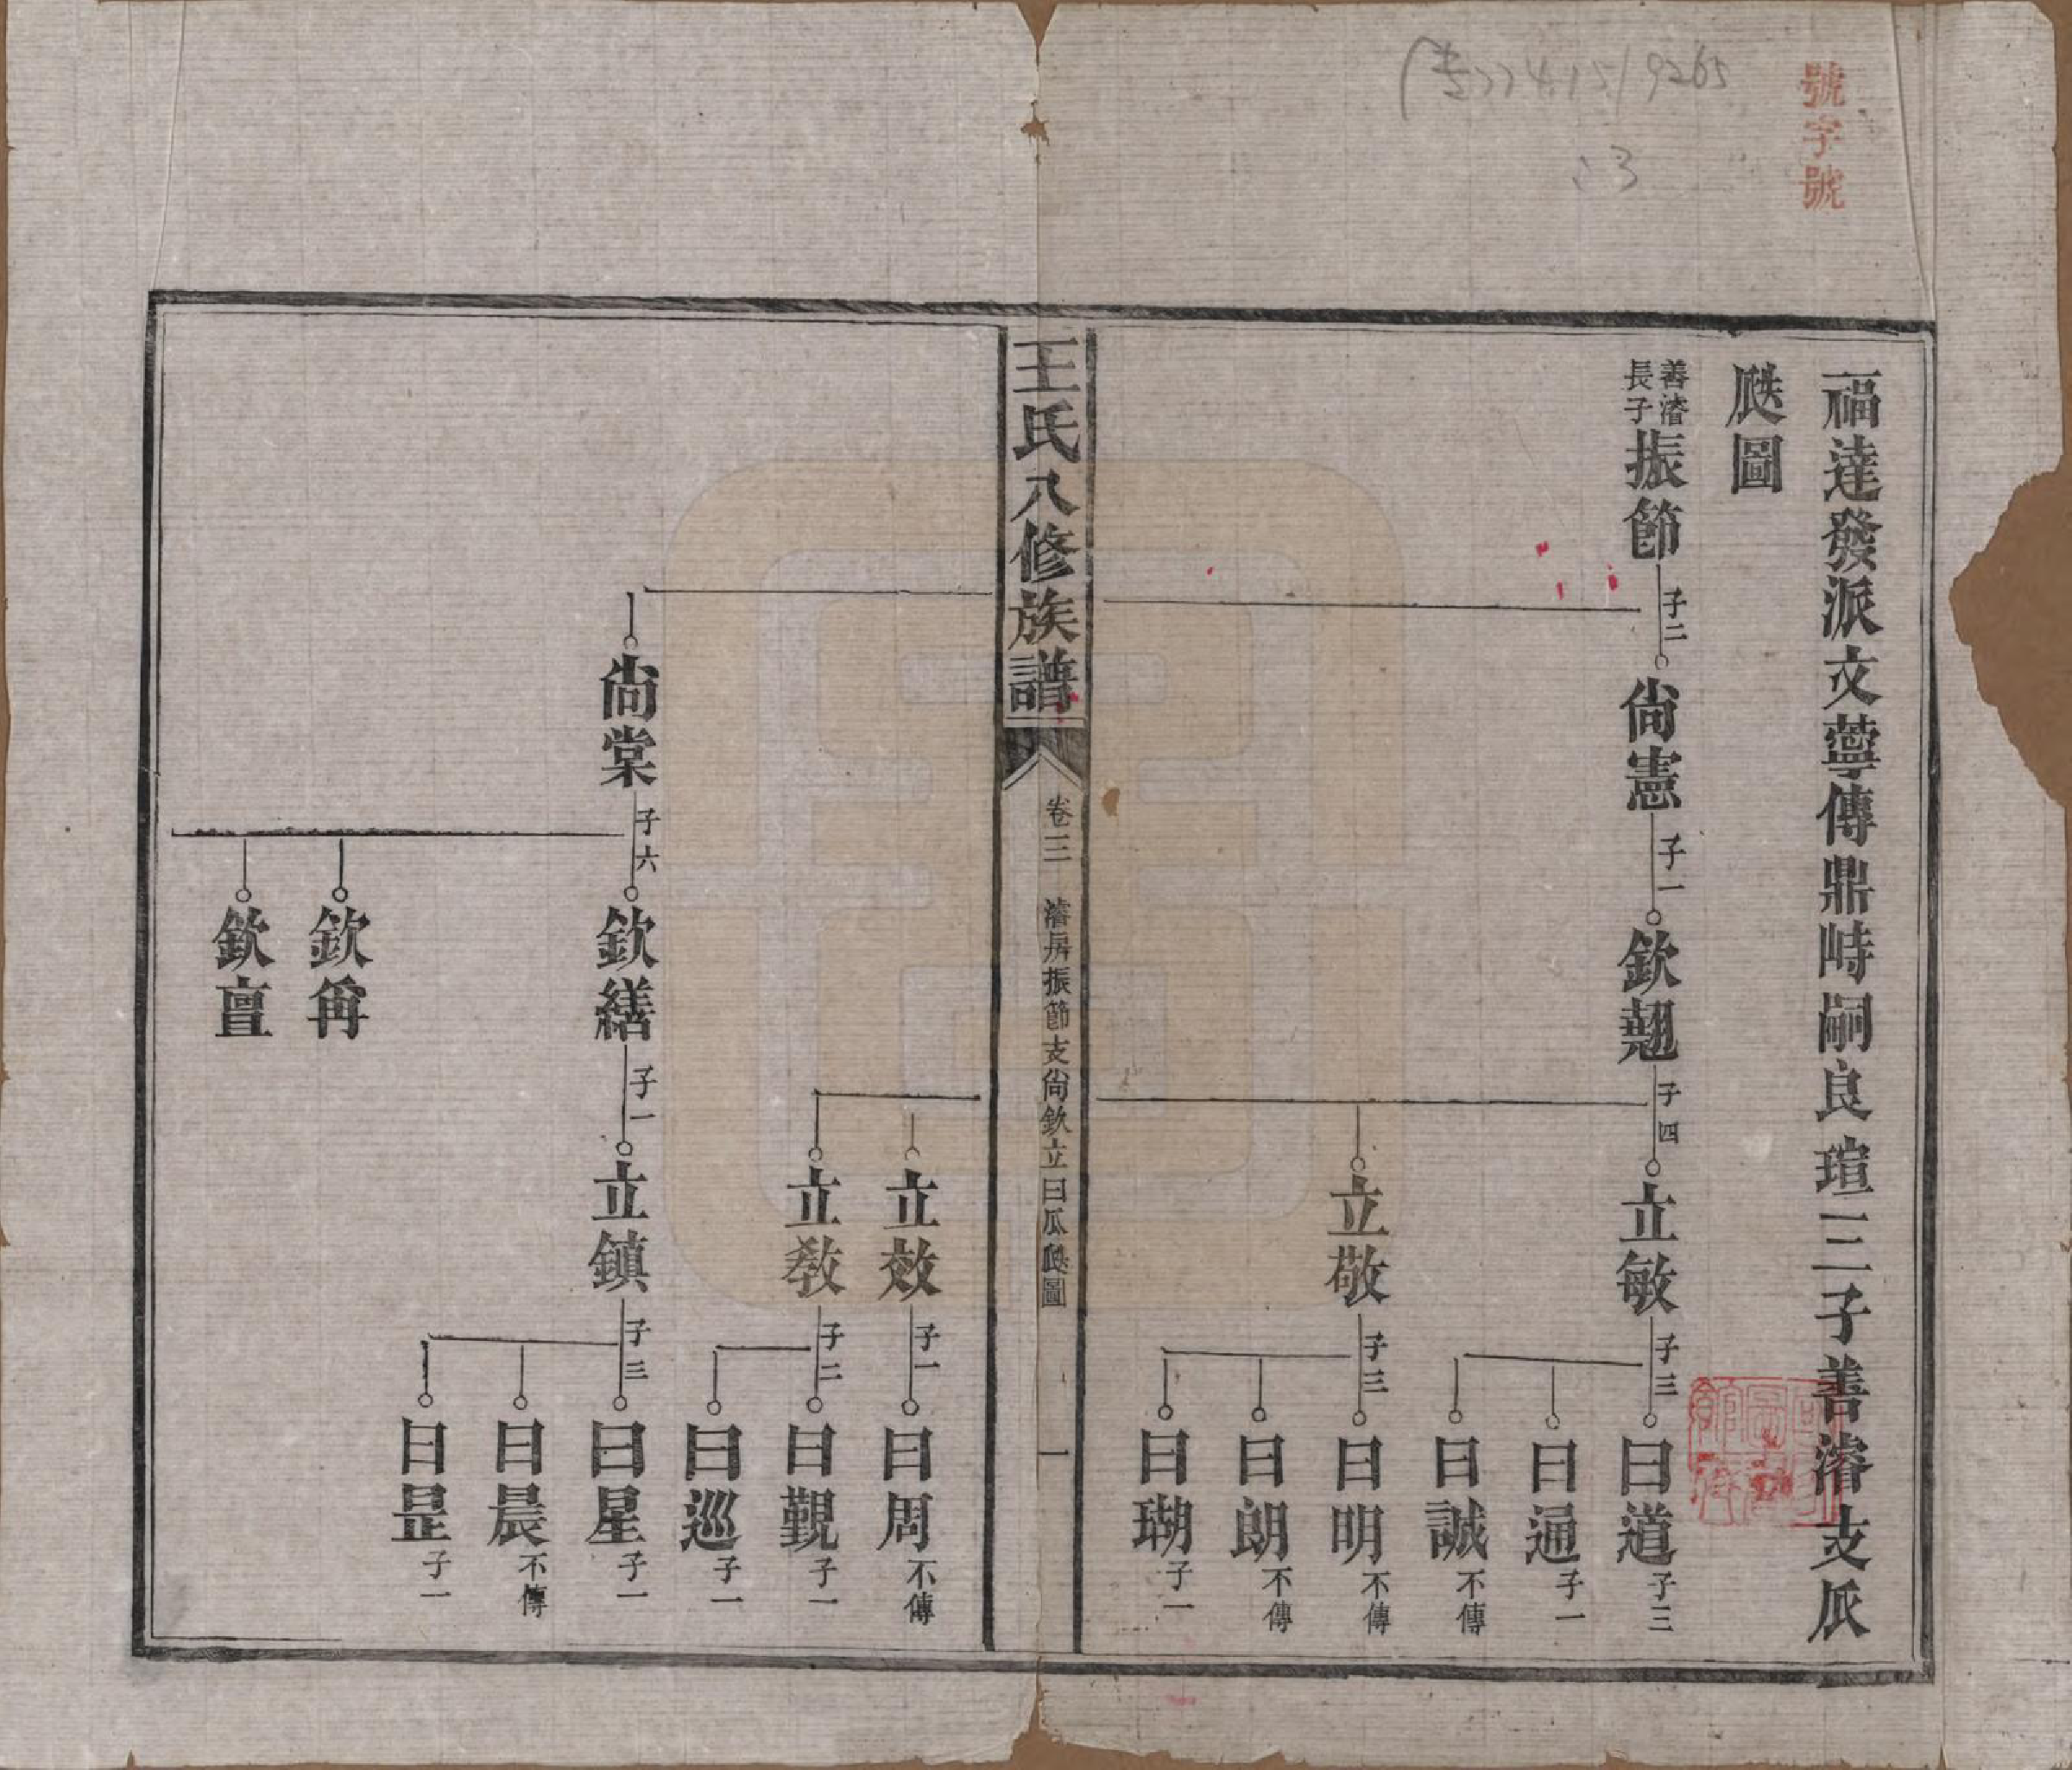 號字號
一福達發派文薴傳鼎峙嗣良瑄三子善濬支瓜
瓞圖
善濬
長子
振節
子二
尙憲
子一
欽翹
子四
立敏
子三
曰道
子三
曰通
子一
曰誠
不傳
立敬
子三
曰明
不傳
曰朗
不傳
曰瑚
子一
王氏八修族譜
卷三
濬房振節支尙欽立曰瓜瓞圖
一
立效
子一
曰周
不傳
立教
子二
曰覲
子一
曰巡
子一
尙棠
子六
欽繕
子一
立鎮
子三
曰星
子一
曰晨
不傳
曰昰
子一
欽爯
欽亶